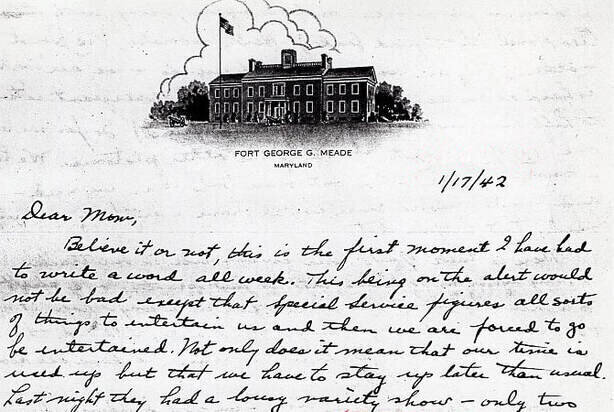 FORT GEORGE G. MEADE
MARYLAND
1/17/42
Dear Mom,
Believe it or not, this is the first moment I have had
to write a word all week. This being on the alert would
not be bad except that Special Service figures all sorts
of things to entertain us and then we are forced to go
be entertained. Not only does it mean that our time is
used up but that we have to stay up later than usual.
Last night they had a lousy variety show - only two